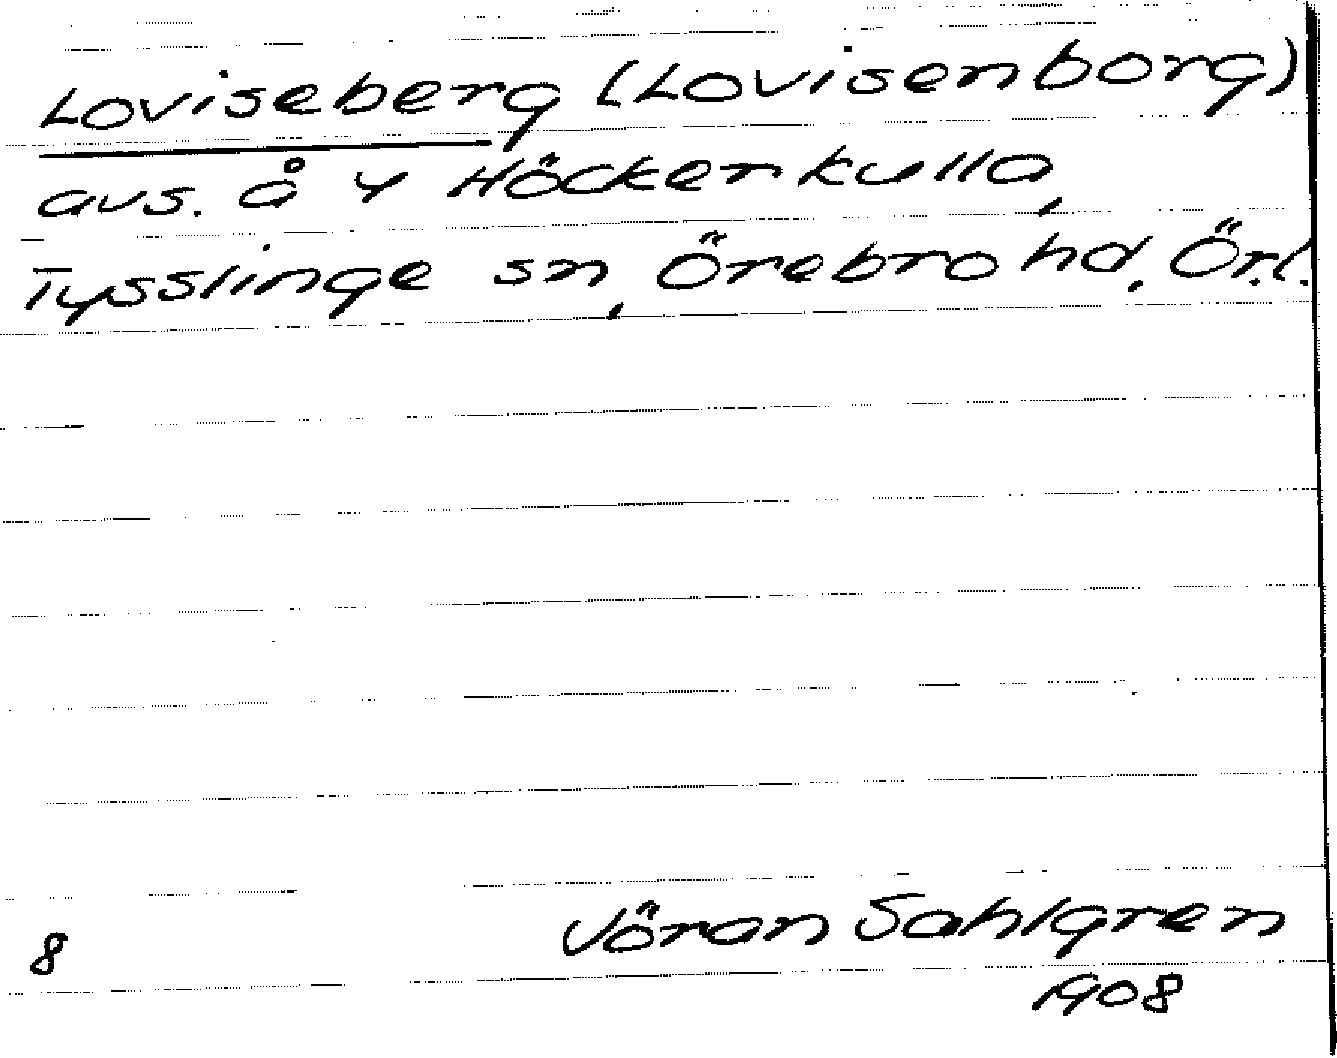 Loviseberg (Lovisenborg)
avs. å Y Höckerkulla,
Tysslinge sn, Örebro hd, Ör.l.
Jöran Sahlgren
8
1908